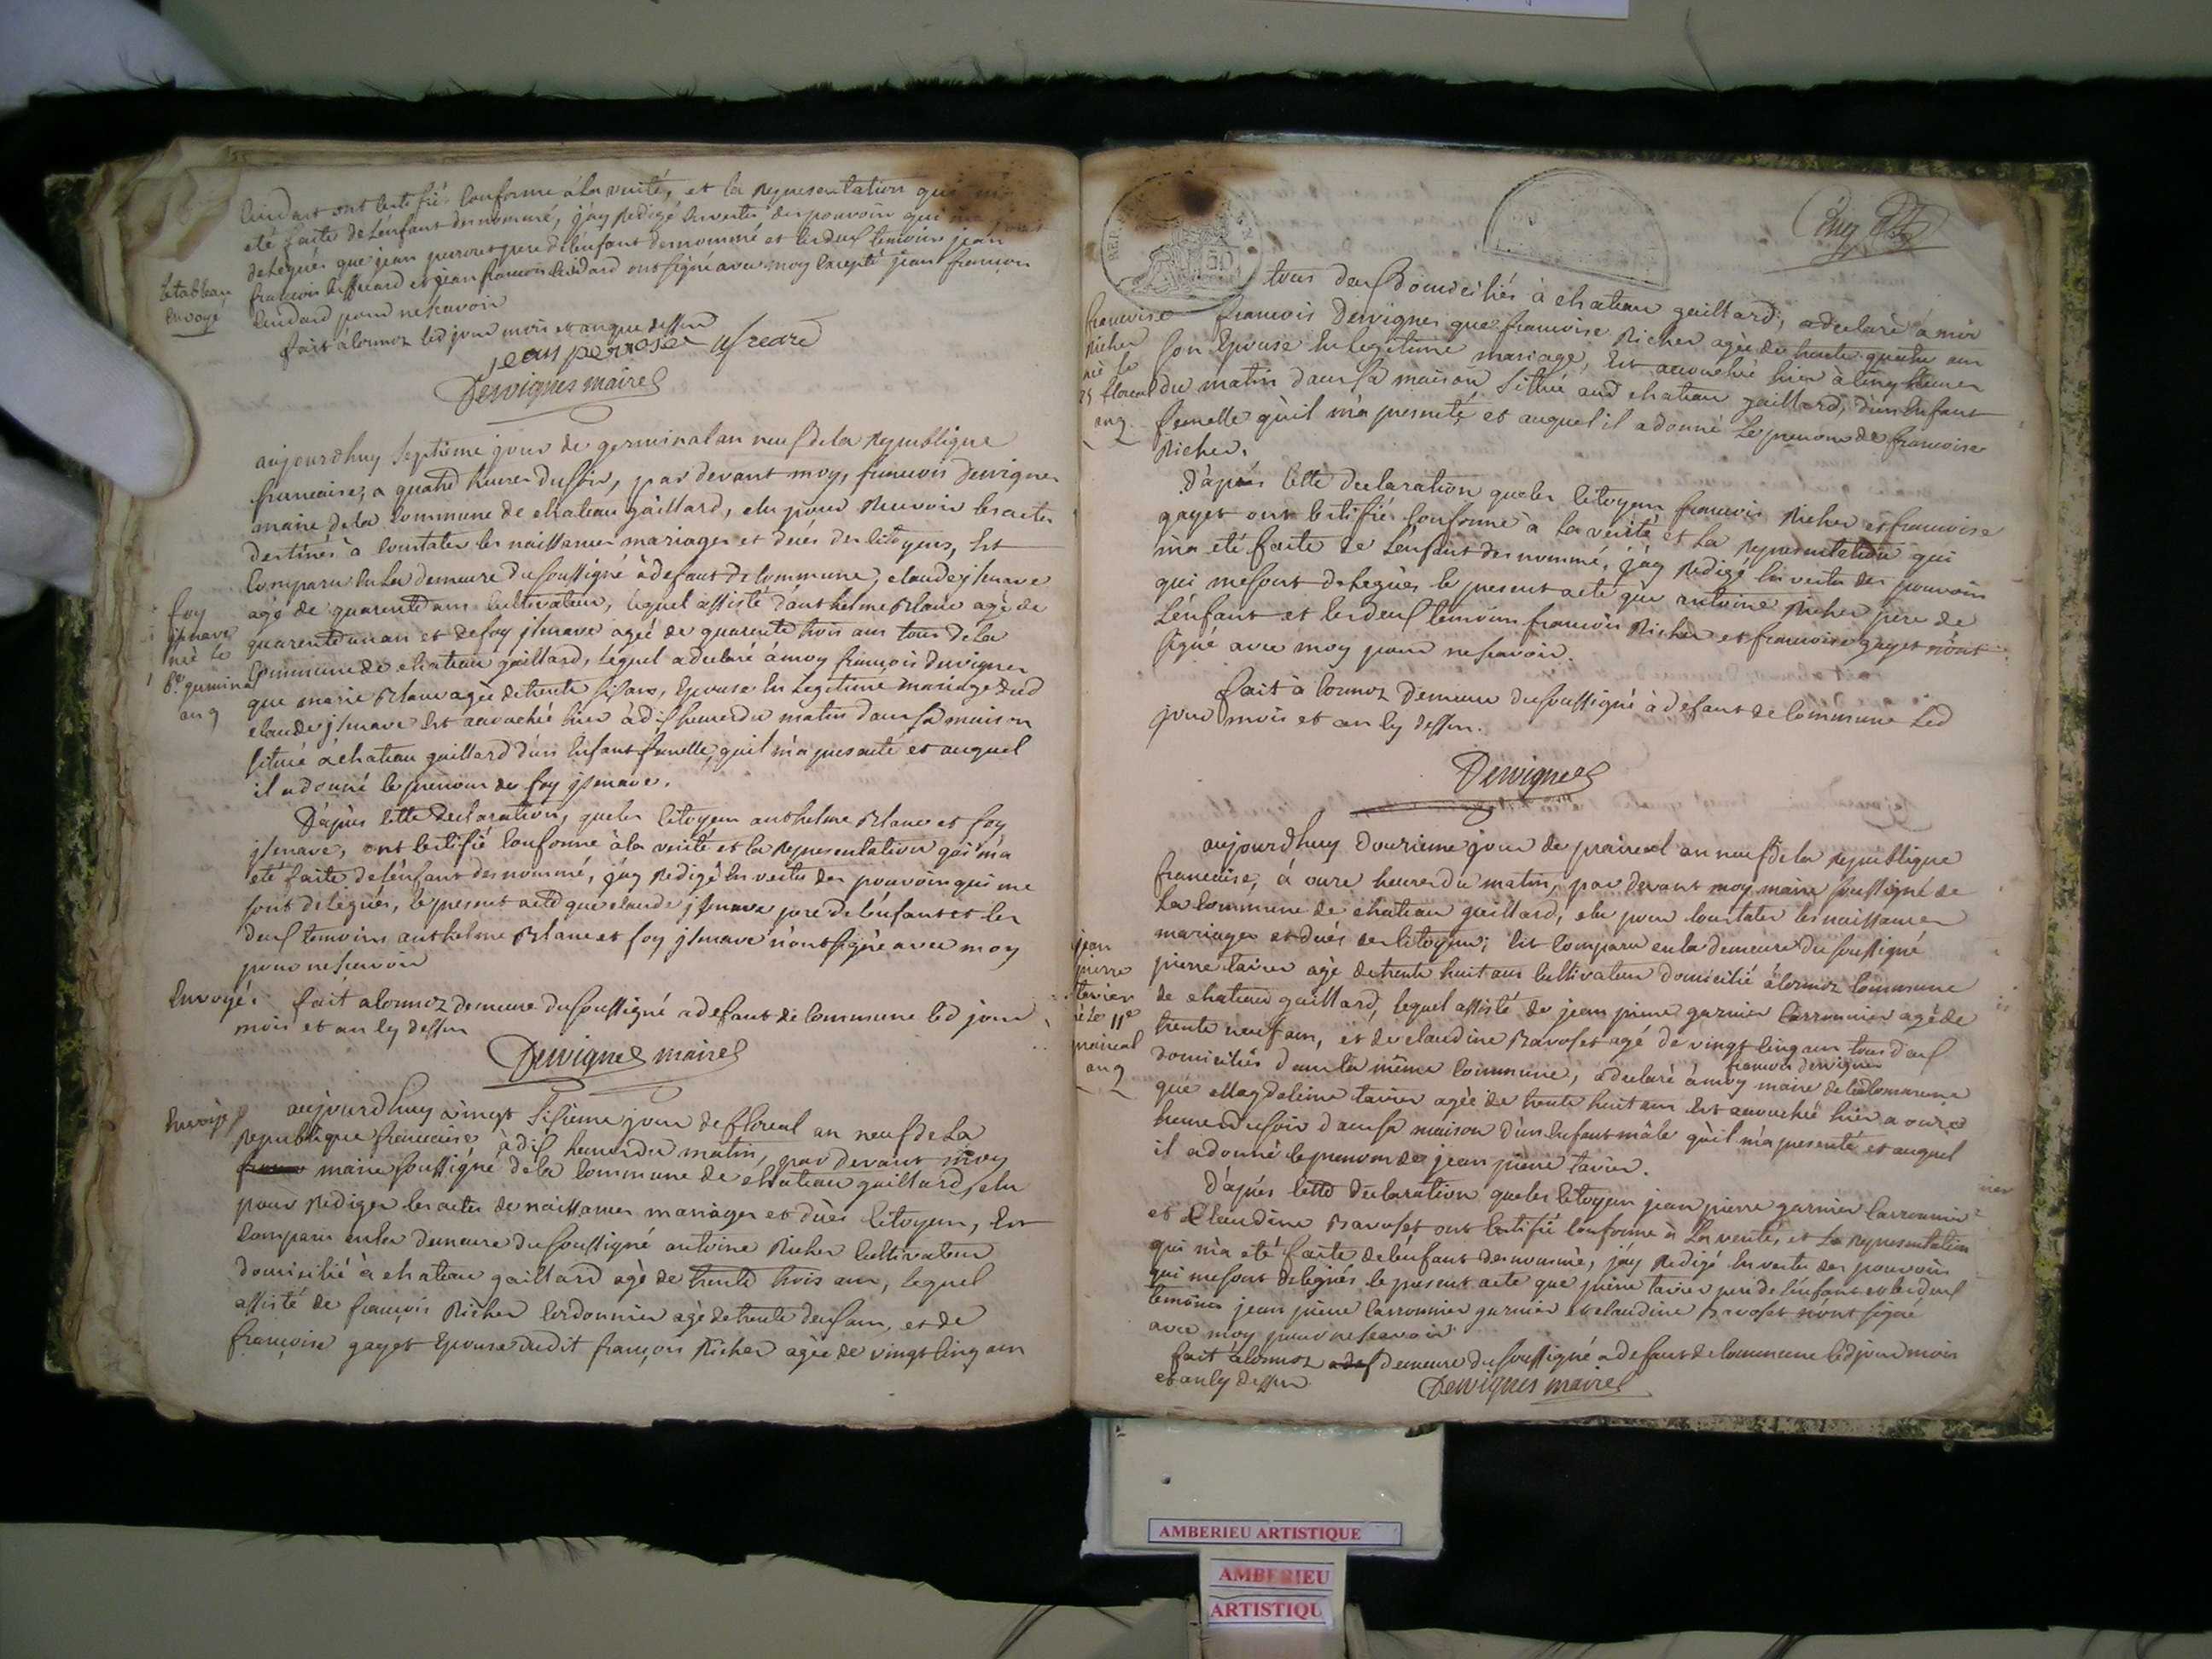 lindard ont certifié conforme à la verité, et la representation qui m'a
eté faite de l'enfant dernommé, j'ay redigé en vertu des pouvoirs qui me sont
delegués que jean perroset pere de l'enfant dernommé et les deux temoins jean
françois et jean francois lindard ont signé avec moy excepté jean françois
lindard pour ne scavoir
le tableau
envoyé
fait à cormoz led jour mois et an que dessus
jean perroset
Dervignes maire
aujourdhuy septieme jour de germinal an neuf de la republique
francaise, a quatre heures du soir, par devant moy, francois Dervignes
maire de la commune de chateau gaillard, elu pour recevoir les actes
destinés à constater les naissances mariages et decés des citoyens, est
comparu en la demeure du soussigné à defaut de commune, claude jsenave
agé de quarente ans cultivateur, lequel assisté d'anthelme Blanc agé de
quarente un an et de foy jsenave agée de quarente trois ans tous de la
commune de chateau gaillard, lequel a declaré à moy françois dervignes
que marie Blanc agée de trente six ans, epouse en legitime mariage dud
claude jsenave est accouchée hier à dix heures du matin dans sa maison
située à chateau gaillard d'un enfant femelle, qu'il m'a presenté et auquel
il a donné le prenom de foy jsenave.
foy
jsenave
née le
6e germinal
an 9
D'après cette declaration, que les citoyens anthelme Blanc et foy
jsenave, ont certifié conforme à la verité et la representation qui m'a
eté faite de l'enfant dernommé, j'ay redigé en vertu des pouvoirs qui me
sont delegués, le present acte que claude jsenave pere de l'enfant et les
deux temoins anthelme Blanc et foy jsenave n'ont signé avec moy
pour ne scavoir
envoyé
fait a cormoz demeure du soussigné a defaut de commune led jour
mois et an cy dessus
Dervignes maire
envoyé
aujourdhuy vingt sixieme jour de floreal an neuf de la
republique francaise à dix heures du matin, par devant moy
maire soussigné de la commune de chateau gaillard, elu
pour rediger les actes de naissances mariages et decès citoyens, est
comparu en la demeure du soussigné antoine Richer cultivateur
domicilié à chateau gaillard agé de trente trois ans, lequel
assisté de françois Richer cordonnier agé de trente deux ans, et de
françoise gayet epouse dudit françois Richer agée de vingt cinq ans
tous deux domiciliés à chateau gaillard, a declaré à moi
francois Dervignes que francoise Richer agée de trente quatre ans
son epouse en legitime mariage, est accouchée hier à cinq heures
du matin dans sa maison située aud chateau gaillard, d'un enfant
femelle qu'il m'a presenté, et auquel il a donné le prenom de francoise
Richer.
francoise
Richer
née le
25 floreal
an 9
D'après cette declaration que les citoyens francois Richer et francoise
gayet ont certifié conforme à la verité et la representation qui
m'a eté faite de l'enfant dernommé, j'ay redigé en vertu des pouvoirs
qui me sont delegués le present acte que antoine Richer pere de
l'enfant et les deux temoins francois Richer et francoise gayet n'ont
signé avec moy pour ne scavoir.
fait à cormoz demeure du soussigné à defaut de commune led
jour mois et an cy dessus.
Dervignes
aujourdhuy douzieme jour de prairial an neuf de la republique
francaise, à onze heures du matin, par devant moy maire soussigné de
la commune de chateau gaillard, elu pour constater les naissances
mariages et decés des citoyens; est comparu en la demeure du soussigné
pierre tavier agé de trente huit ans cultivateur domicilié à cormoz commune
de chateau gaillard, lequel assisté de jean pierre garnier agé de
trente neuf ans, et de claudine Ravoset agé de vingt cinq ans tous deux
domiciliés dans la même commune, a declaré à moy francois dervignes maire de la commune
que Magdeleine tavier agée de trente huit ans est accouchée hier a onze
heures du soir dans sa maison d'un enfant mâle qu'il m'a presenté et auquel
il a donné le prenom de jean pierre tavier.
jean
pierre
tavier
né le 11e
prairial
an 9
D'après cette declaration que les citoyens jean pierre garnier
et Claudine Ravoset ont certifié conforme à la verité, et la representation
qui m'a eté faite de l'enfant dernommé, j'ay redigé en vertu des pouvoirs
qui me sont delegués le present acte que pierre tavier pere de l'enfant et les deux
temoins jean pierre garnier et claudine Ravoset n'ont signé
avec moy pour ne scavoir
fait à cormoz demeure du soussigné a defaut de commune led jour mois
et an cy dessus
Dervignes maire
AMBERIEU ARTISTIQUE
AMBERIEU
ARTISTIQU